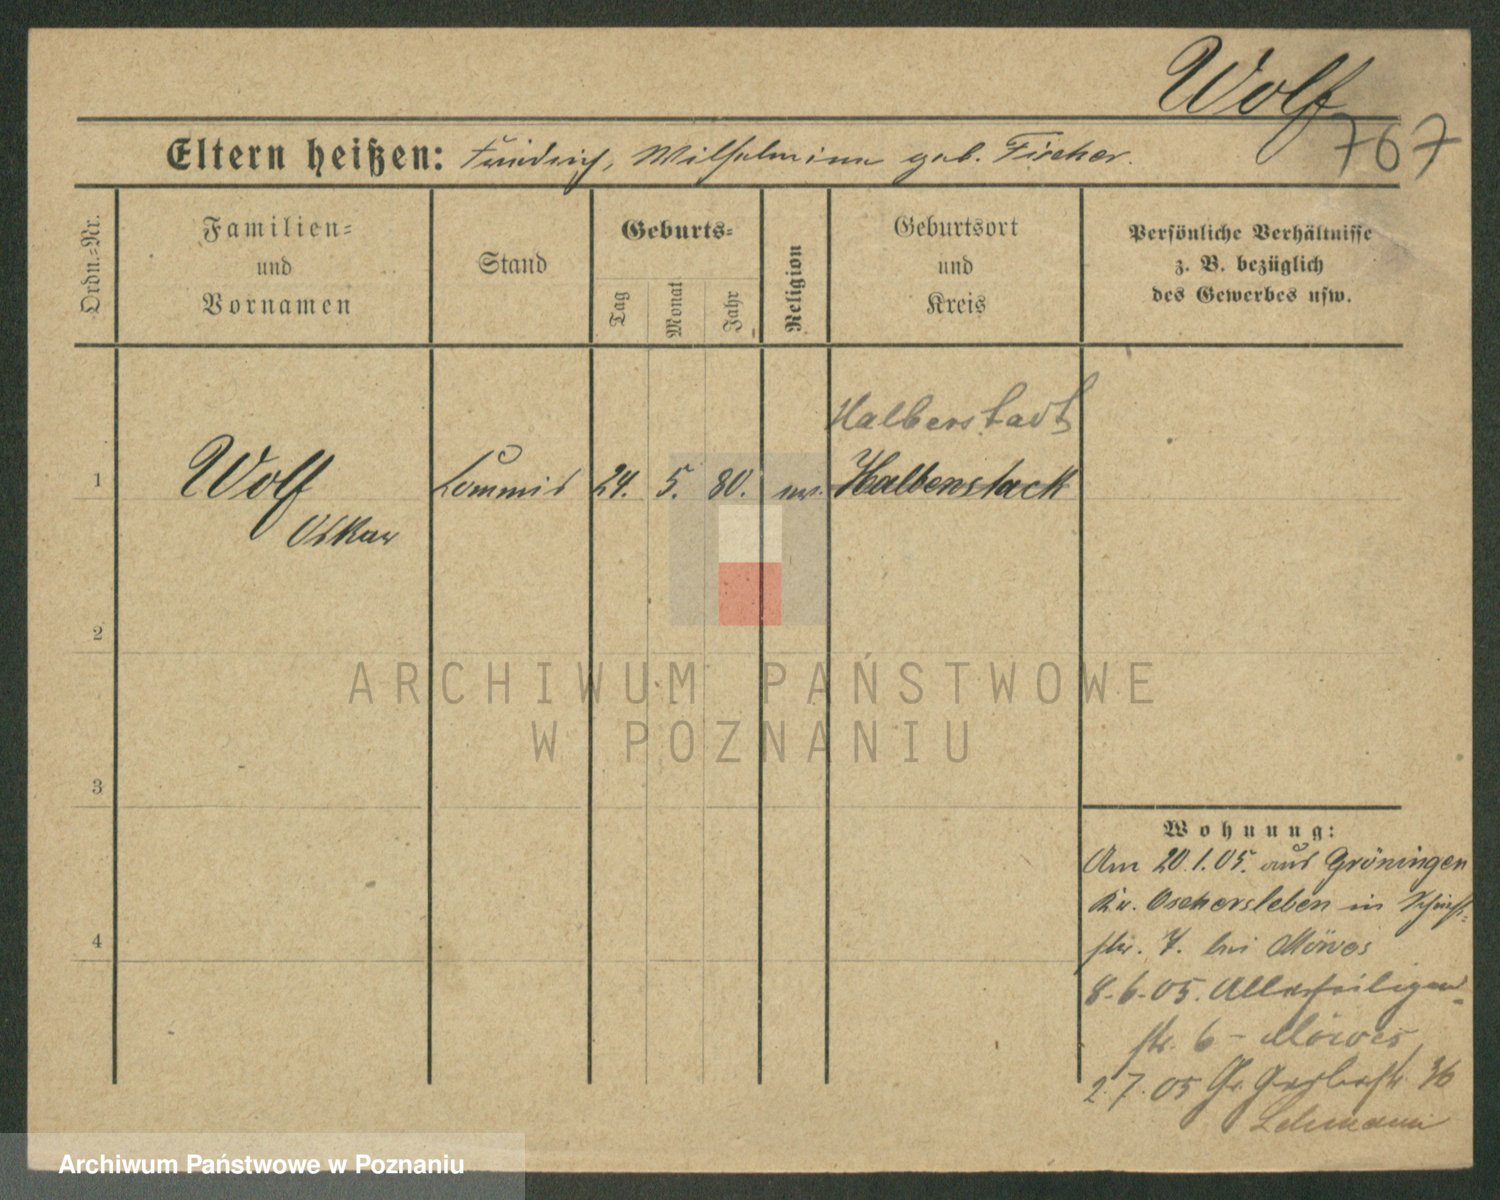 Wolf
767
Eltern heißen: Friedrich, Wilhelmine geb. Fischer.
Ordn.-Nr.
Familien-
und
Vornamen
Stand
Geburts-
Tag
Monat
Jahr
Religion
Geburtsort
und
Kreis
Persönliche Verhältnisse
z. B. bezüglich
des Gewerbes usw.
Halberstadt
1 Wolf Commis 24. 5. 80. Halbenstack
Oskar
2
3
4
Wohnung:
Am 20.1.05. aus Gröningen
Kr. Oschersleben in
str. 7. bei Möwes
8.6.05. Allerheiligen-
str. 6 – Möwes
2.7.05 Gr. Gerberstr. 36
Lehmann
ARCHIWUM PAŃSTWOWE
W POZNANIU
Archiwum Państwowe w Poznaniu